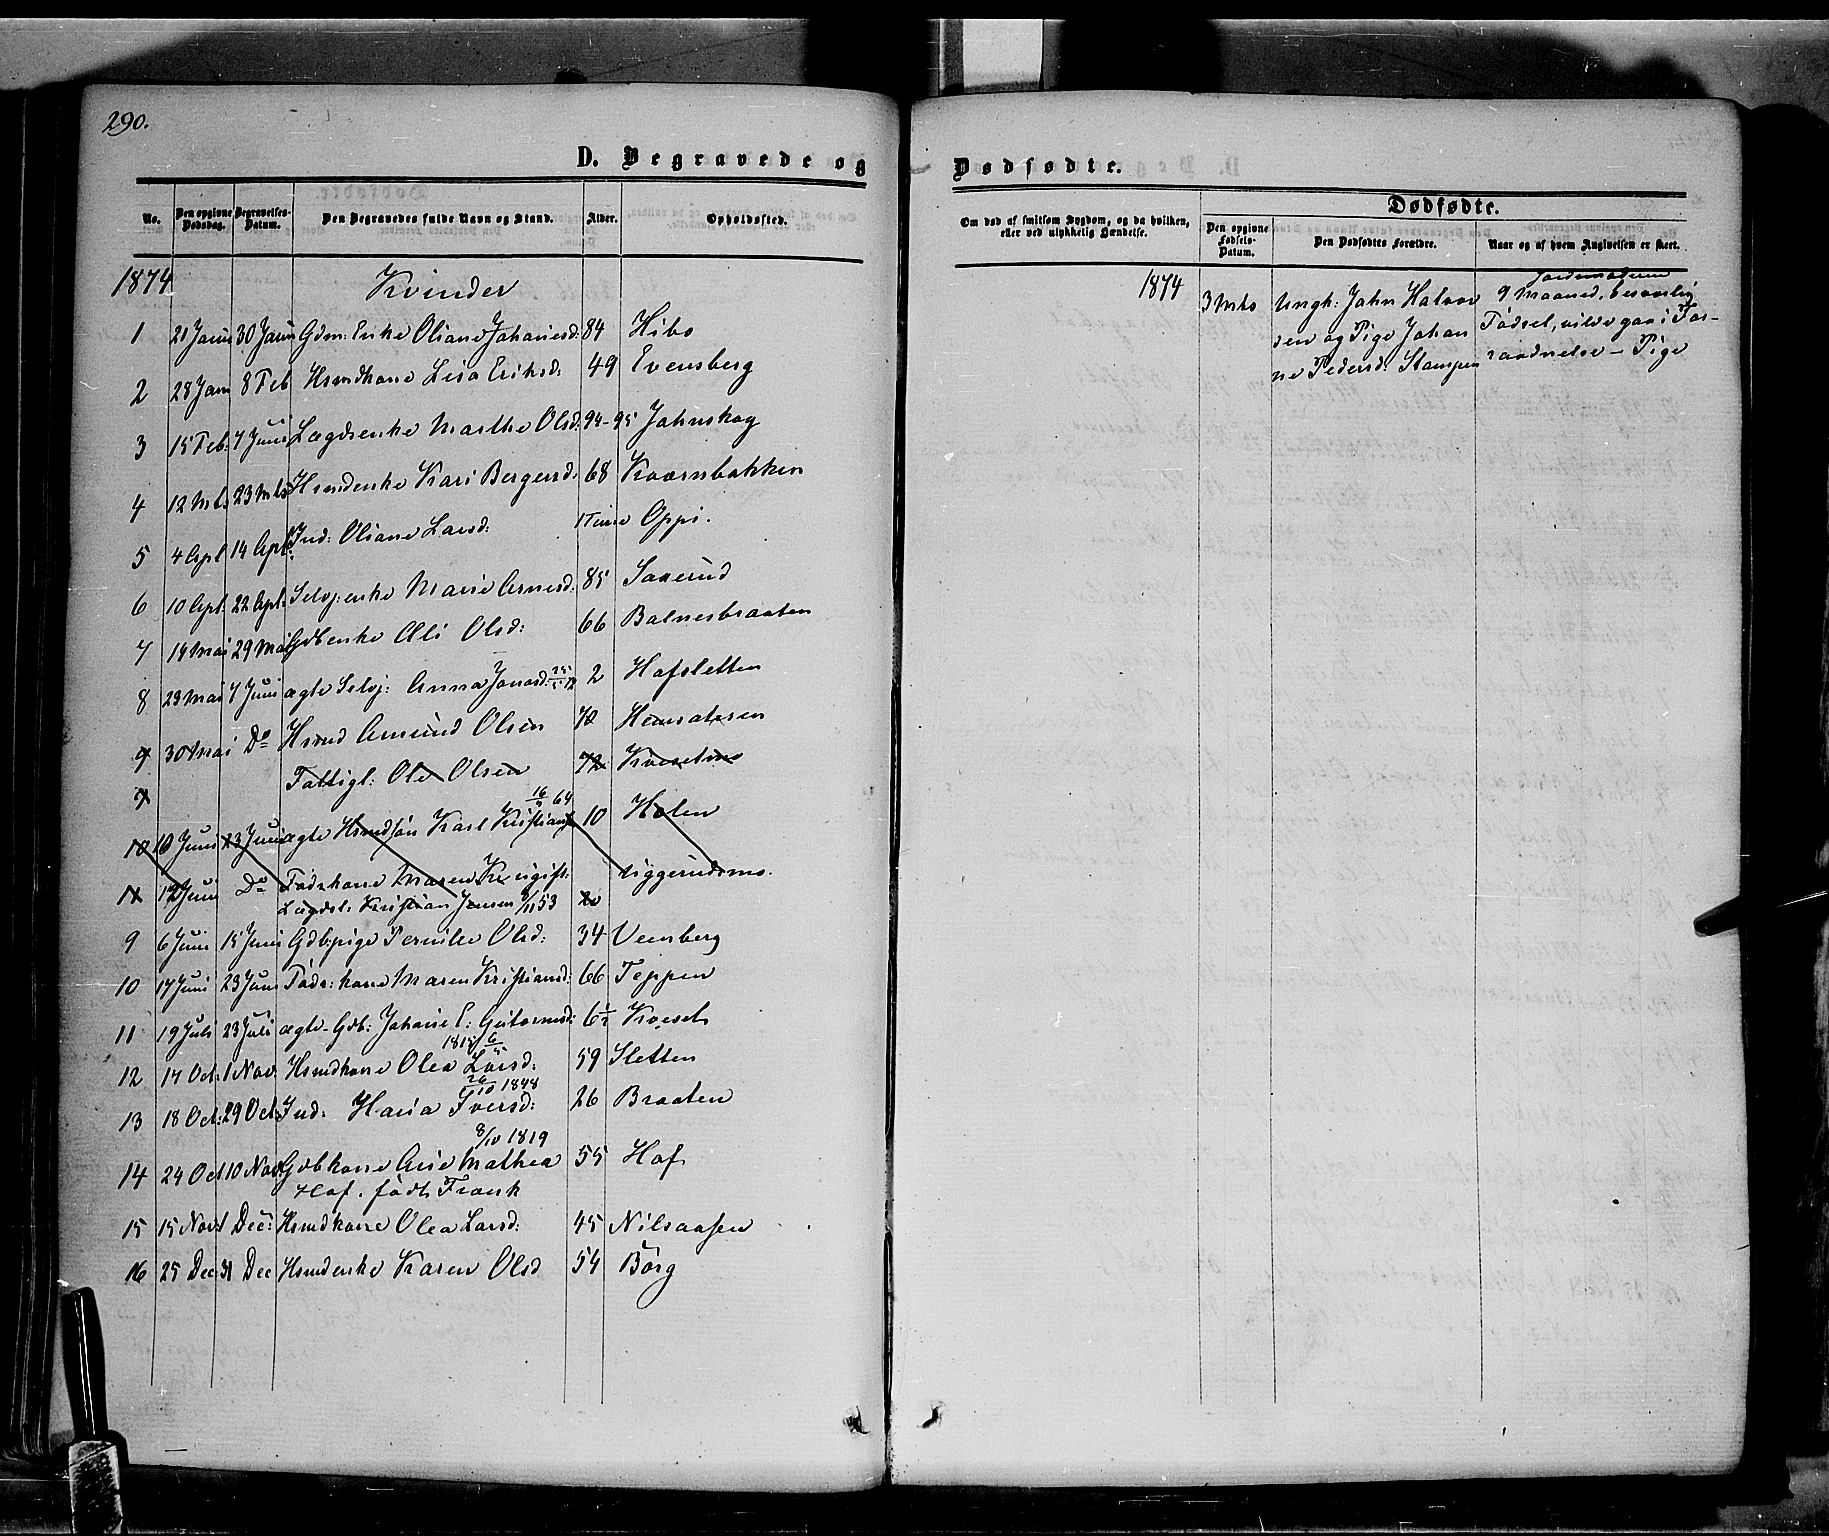 290.
D. Begravede og
No. Den opgivne Dødsdag. Begravelses-Datum. Den Begravedes fulde Navn og Stand. Alder. Opholdssted.
1874 Kvinder
1 21 Janu 30 Janu Gdm: Enke Oliane Johanesd: 84 Hibo
2 28 Janu 8 Feb Hsmdkone Lisa Eriksd: 49 Evensberg
3 15 Feb: 7 Juni Lægdsenke Marthe Olsd: 94-95 Jahnskog
4 12 Mts 23 Mts Hsmdenke Kari Bergersd: 68 Kværnbakken
5 4 Apl 14 Apl: Ind: Oliane Larsd: 1 Time Oppi.
6 10 Apl: 22 Apl: Selvj: enke Marie Arnesd: 85 Saxerud
7 14 Mai 29 Mai Gdbenke Eli Olsd: 66 Balnesbraaten
8 23 Mai 7 Juni ægte Selvj: Anna Jonasd: 2 Hofsletten
9 30 Mai Do Hsmd Amund Olsen 72 
7 Fattigl: Ole Olsen 72 Kvesetmo
16/ 64
10 10 Juni 23 Juni ægte Hsmdsøn Karl Kristians 10 Holen
11 12 Juni Do Fødskone Maren Kr ugift riggerudsmo.
Lægdsl: Kristian Jensen 8/11 53 20
9 6 Juni 15 Juni Gdbpige Pernille Olsd: 34 Veensberg
10 17 Juni 23 Juni Føds: kone Maren Kristiansd: 66 Teppen
11 19 Juli 23 Juli ægte Gdb: Johane E: Gutormsd: 6½ Kveset
1815 6/5
12 14 Oct: 1 Nov: Hsmdkone Olea Larsd: 59 Sletten
26/10 1848
13 18 Oct: 29 Oct: Ind: Maria Iversd: 26 Braaten
8/10 1819
14 24 Oct 10 Nov Gdbkone Anne Mathea 55 Hof
Hof. født Frank
15 15 Nov: 1 Dec: Hsmdkone Olea Larsd: 45 Nilsaasen
16 25 Dec 31 Dec Hsmdenke Karen Olsd 54 Borg
Dødfødte.
Om død af smitsom Sygdom, og da hvilken, eller ved ulykkelig Hændelse.
Dødfødte.
Den opgivne Fødsels-Datum. Den Dødfødtes Forældre. Naar og af hvem Angivelsen er skeet.
1874 3 Mts Ungk: John Halvor
sen og Pige Johan
ne Pedersd: Stampen
Jordemoderen
9 Maaned, besværlig
Fødsel, vilde gaa i For-
raadnelse - Pige